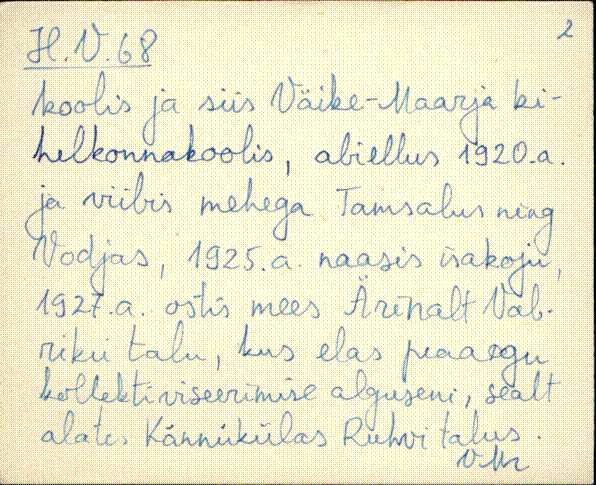 H.V.68
2
koolis ja siis Väike-Maarja ki-
helkonnakoolis, abiellus 1920.a.
ja viibis mehega Tamsalus ning
Vodjas, 1925.a. naasis isakoju,
1927.a. ostis mees Ärinalt Vab-
riku talu, kus elas peaaegu
kollektiviseerimise alguseni, sealt
alates Kännukülas Ruhvi talus.